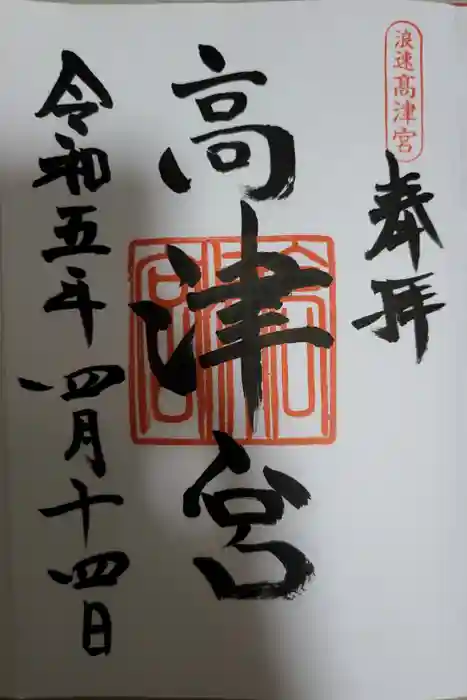 浪速高津宮
奉拝
高津宮
令和五年四月十四日